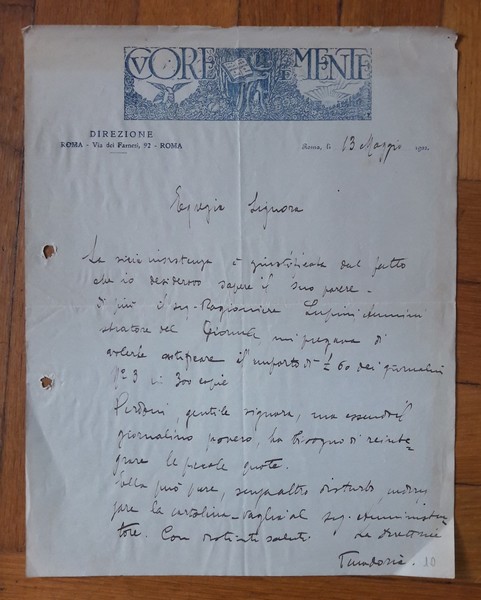 CVORE E MENTE
DIREZIONE
ROMA - Via dei Farnesi, 92 - ROMA
Roma, li 13 Maggio 192
Egregia Signora
La mia insistenza è giustificata dal fatto
che io desideravo sapere il suo parere -
Di più il sig. Ragioniere Lupini Ammini
stratore del Giornale mi pregava di
l'importo di £ 60 dei giornalini
N° 3 in 300 copie
Perdoni, gentile signora, ma essendo il
giornalino povero, ha bisogno di reinte-
grare le piccole quote.
Ella può pure, senza altro disturbo, indiriz
zare la cartolina-vaglia al sig. Amministra-
tore. Con distinti saluti. La direttrice
10